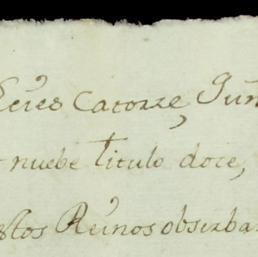 Leies Catorze, Jun
nuebe titulo doce,
stos Reinos obserba